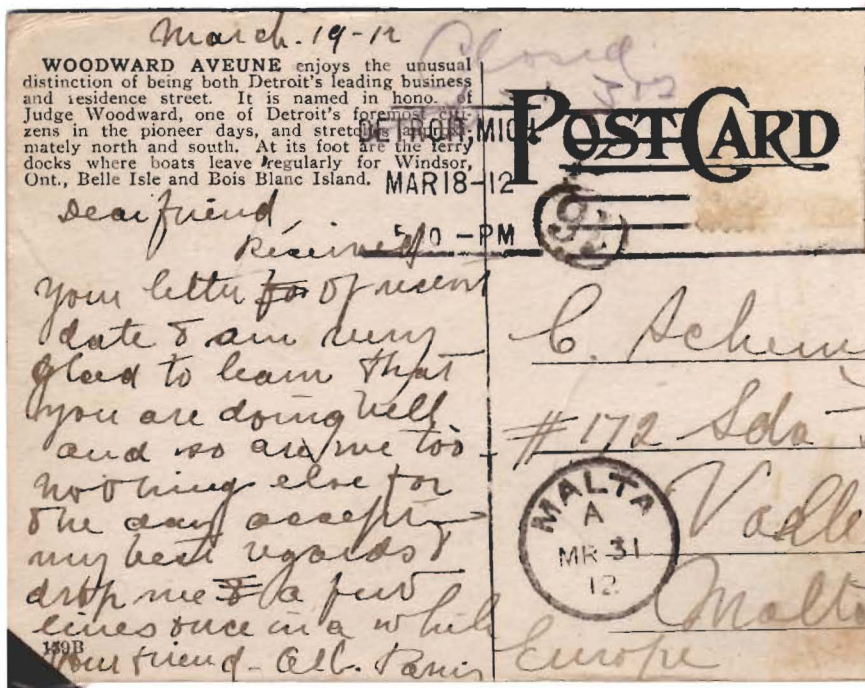 March. 19-12
WOODWARD AVEUNE enjoys the unusual
distinction of being both Detroit's leading business
and residence street. It is named in hono. of
Judge Woodward, one of Detroit's foremost citi-
zens in the pioneer days, and stretches approxi-
mately north and south. At its foot are the ferry
docks where boats leave regularly for Windsor,
Ont., Belle Isle and Bois Blanc Island.
Dear friend
Received
your letter for of recent
date & am very
glad to learn that
you are doing well
and so are we too
nothing else for
the day accept
my best regards &
drop me & a few
lines once in a while
your friend - Alb.
139B
Closed
POST CARD
DETROIT, MICH
MAR 18-12
-PM
C. Schem
#172 Sda
Valle
Malta
Europe
MALTA
A
MR 31
12